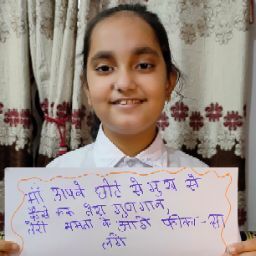 माँ आपके छोटे से मुख से
कैसे करूँ तेरा गुणगान,
तेरी ममता के आगे फीका-सा
लगे